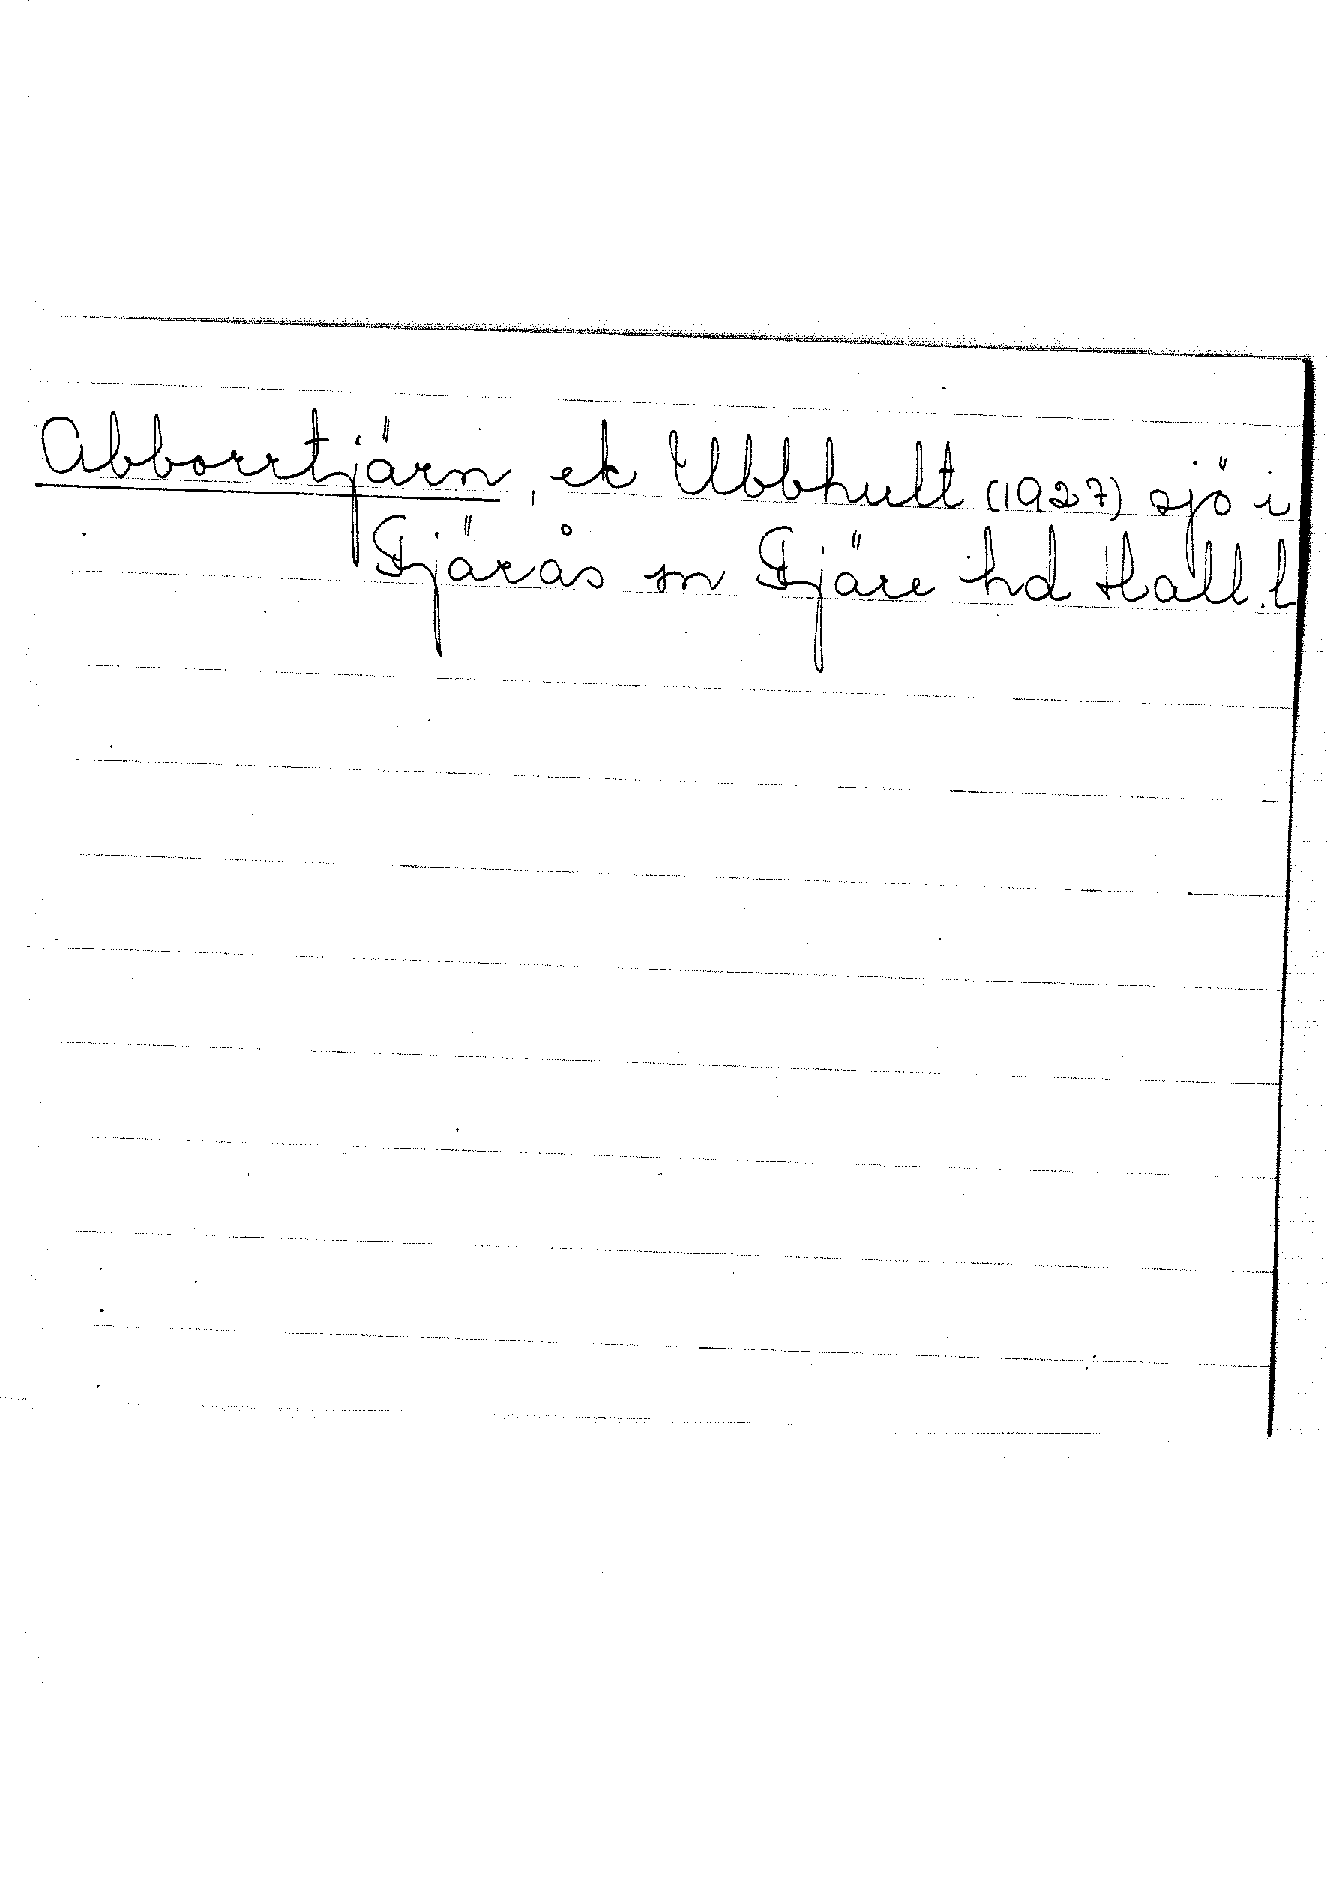 Abborrtjärn, ek Ubbhult (1927) sjö i
Fjärås sn Fjäre hd Hall. l